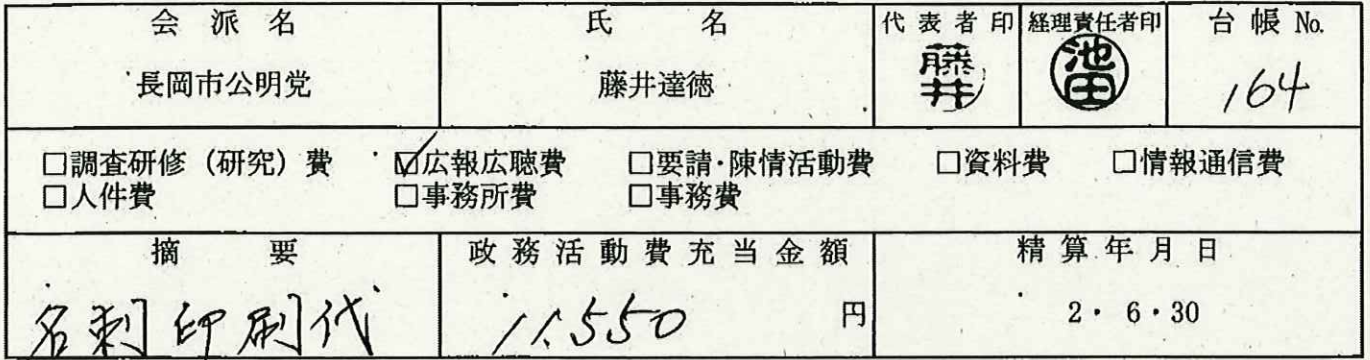 会派名 氏名 代表者印 経理責任者印 台帳 No.
長岡市公明党 藤井達徳 藤井 池田 164
□調査研修（研究）費 ☑広報広聴費 □要請・陳情活動費 □資料費 □情報通信費
□人件費 □事務所費 □事務費
摘要 政務活動費充当金額 精算年月日
名刺印刷代 11,550 円 2・6・30